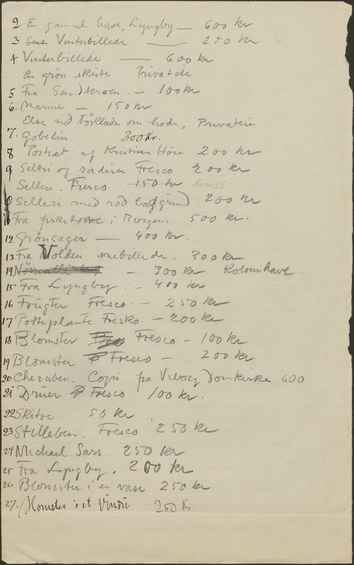 2 E gammel Lyngby — 600 kr
3 Vinterbillede — 250 kr
4 Vinterbillede — 600 kr
En grøn skitse Privateie
5 Fra — 100 kr
6. Marine — 150 kr
Privateie
7. Gobelin 300 kr.
8 Portræt af Kristian 200 kr
9 Selleri og Fresco 200 kr
Selleri. Fresco — 150 kr
Selleri med rød baggrund 200 kr
Fra i 500 kr.
12 — 400 kr.
13 Fra Volden 300 kr
14 — 300 kr Kolonihave
15 Fra Lyngby. — 400 kr
16 Frugter Fresco — 250 kr
17 Potteplante Fresko — 200 kr
18 Blomster Fresco — 100 kr
19 Blomster Fresco — 200 kr
20 Cheruben. Copi fra Viborg Domkirke 600
21 Druer Fresco 100 kr.
22 Skitse 50 kr
23 Stilleben. Fresco 250 kr
24 Michael Sars. 250 kr
25 Fra Lyngby. 200 kr
26 Blomster i en vase 250 kr
27. i et Vindue 250 kr